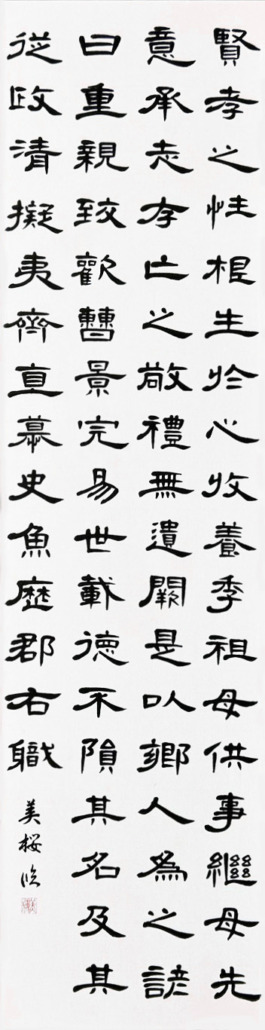 賢孝之性根生於心收養季祖母供事繼母先
意承志存亡之敬禮無遺闕是以鄉人為之諺
曰重親致歡曹景完易世載德不隕其名及其
從政清擬夷齊直慕史魚歷郡右職
美桜临